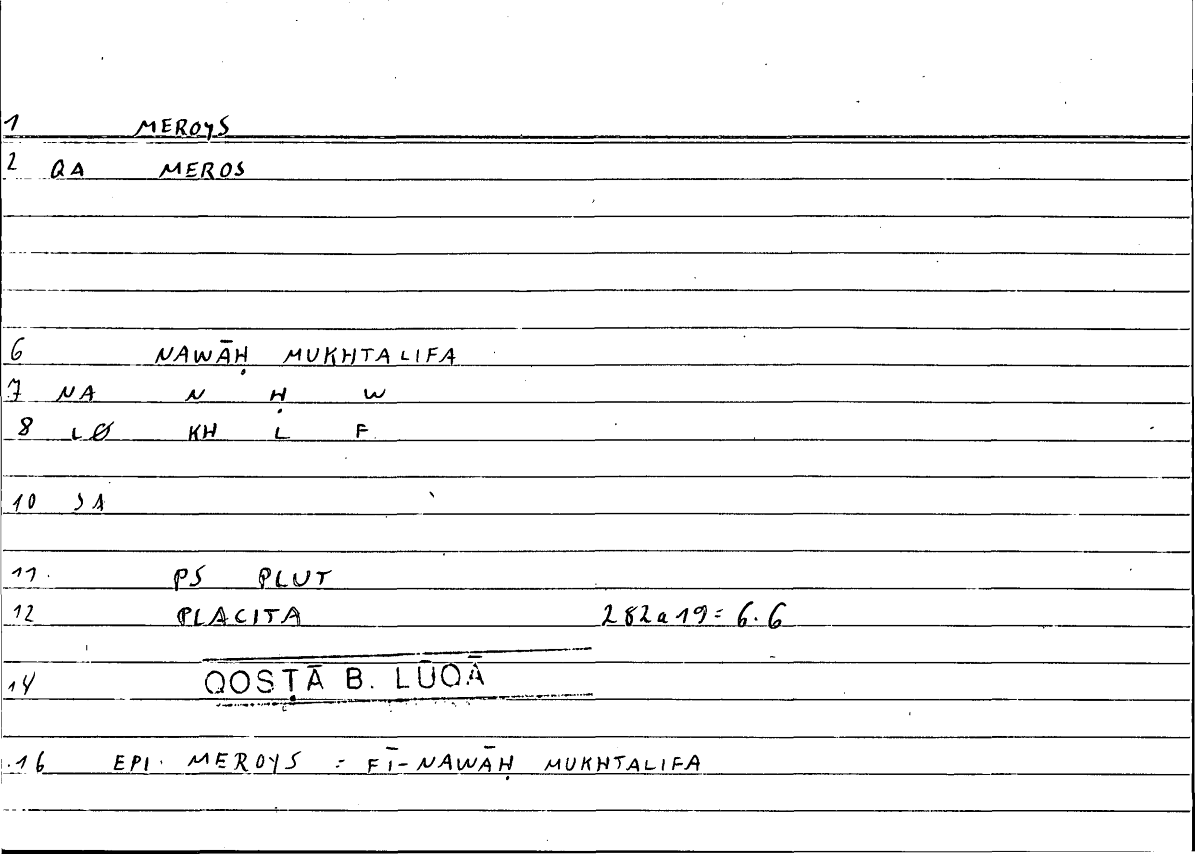 1 MEROYS
2 QA MEROS
6 NAWĀḤ MUKHTALIFA
7 NA N Ḥ W
8 LØ KH L F
10 SA
11. PS PLUT
12 PLACITA 282a19=6.6
14 QOSṬĀ B. LŪQĀ
.16 EPI. MEROYS = FĪ-NAWĀḤ MUKHTALIFA